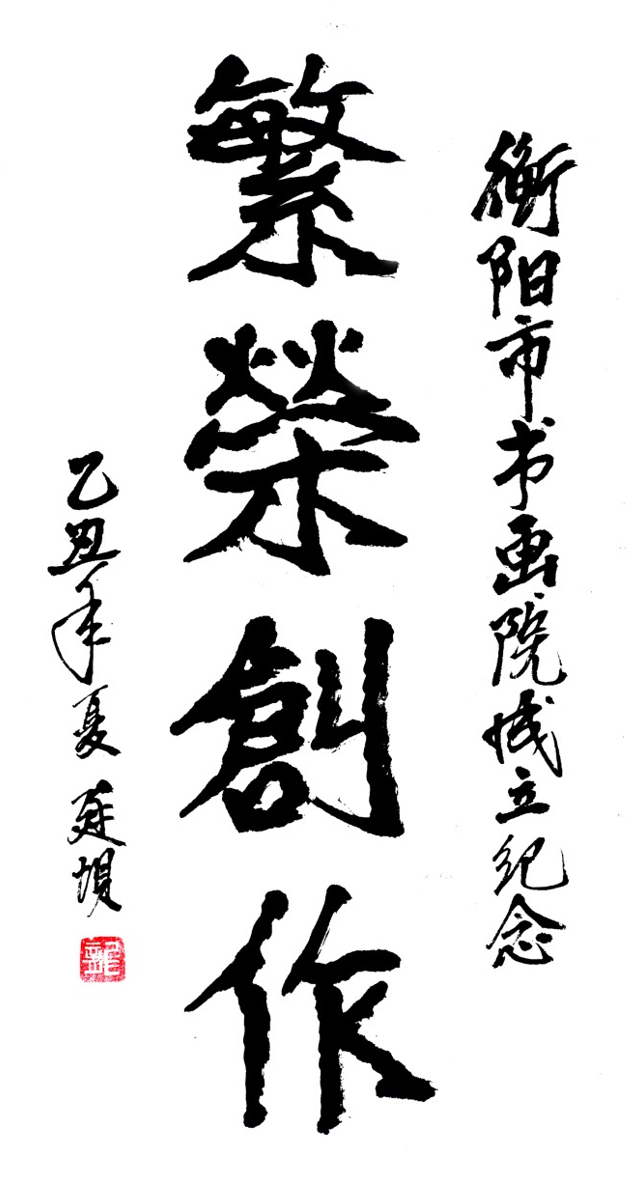 衡阳市书画院成立纪念
繁榮創作
乙丑年夏